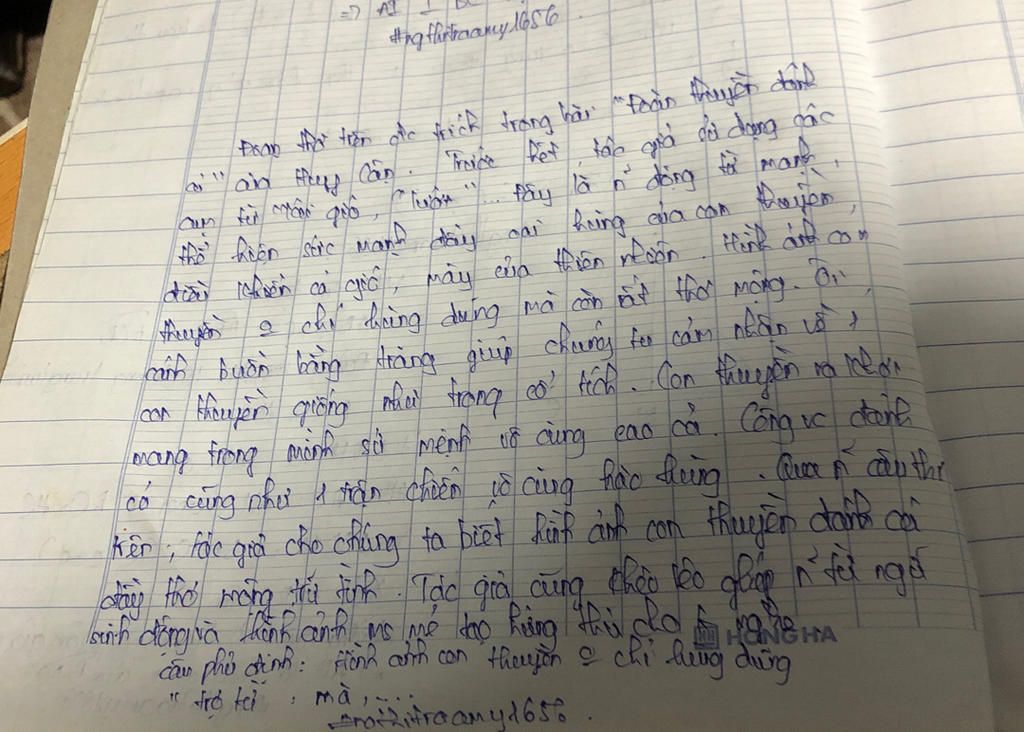 => 
#ngthtraamy1656
Đoạn thơ trên đc trích trong bài "Đoàn thuyền đánh
cá" của Huy Cận. Trước hết, tác giả sử dụng các
cụm từ "lái gió", "lướt"... Đây là n~ động từ mạnh,
thể hiện sức mạnh đầy oai hùng của con thuyền,
chiến cả gió, mây của thiên nhiên. Hình ảnh con
thuyền chỉ hùng dũng mà còn rất thơ mộng. Ôi,
cánh buồm bằng trăng giúp chúng ta cảm nhận về 1
con thuyền giống như trong cổ tích. Con thuyền ra khơi
mang trong mình sứ mệnh vô cùng cao cả. Công vc đánh
cá cũng như 1 trận chiến vô cùng hào hùng. Qua n~ câu thơ
trên, tác giả cho chúng ta biết hình ảnh con thuyền đánh cá
đầy thơ mộng trữ tình. Tác giả cũng khéo léo ghép n~ từ ngữ
sinh động và hình ảnh ms mẻ tạo hứng thú cho nghe
HONG HA
câu phủ định: Hình ảnh con thuyền chỉ hùng dũng
" trợ từ : mà,...
traamy1656.